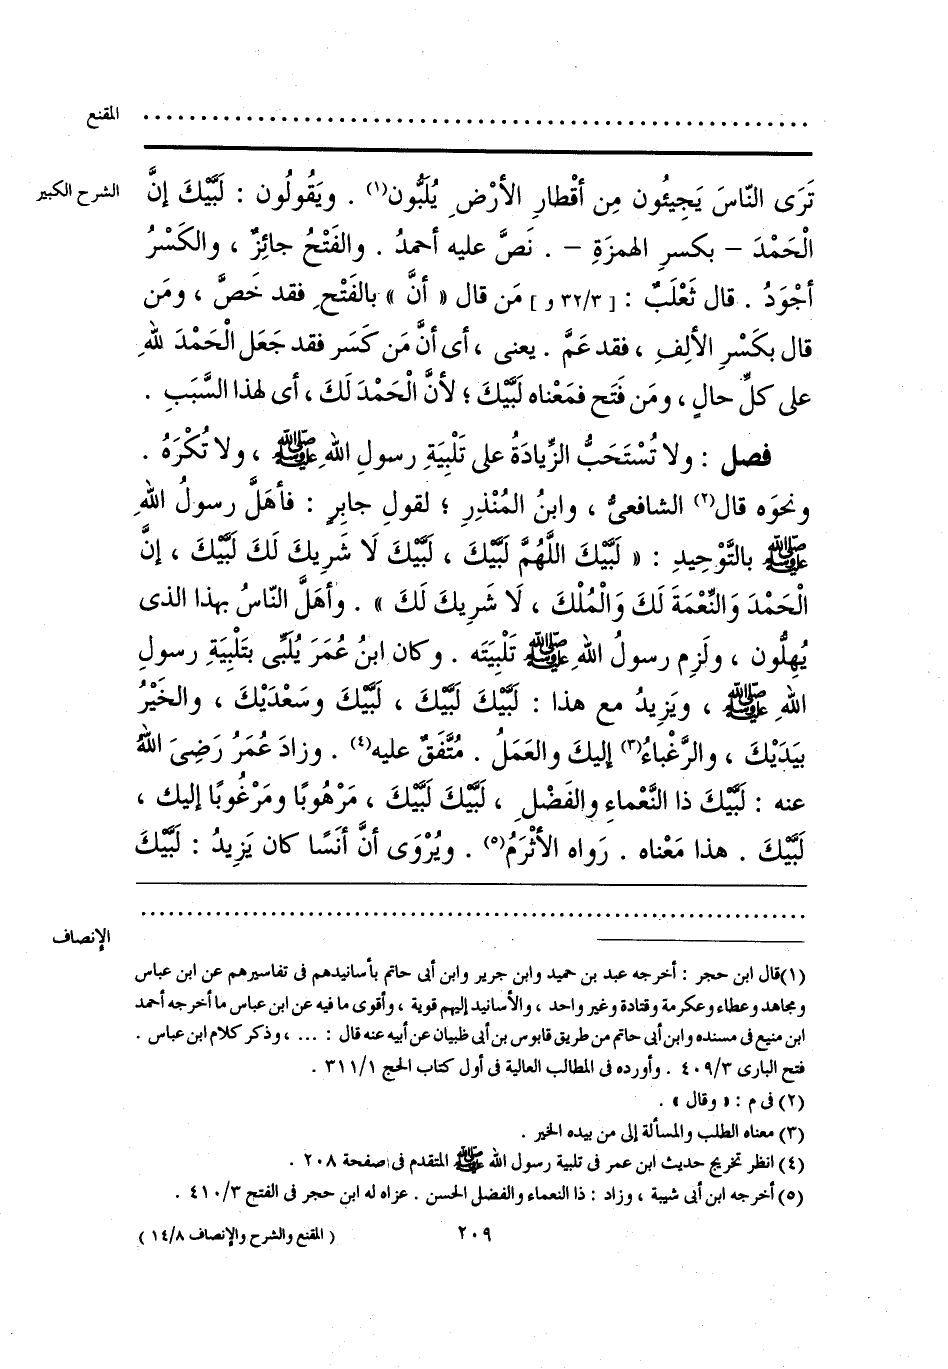 المقنع ................................................................
الشرح الكبير
تَرَى النّاسَ يَجِيئُون مِن أقْطارِ الأرْضِ يُلَبُّون(١) . ويَقُولُون : لَبَّيْكَ إنَّ
الْحَمْدَ – بكسرِ الهمزَةِ – . نَصَّ عليه أحمدُ . والفَتْحُ جائِزٌ ، والكَسْرُ
أجْوَدُ . قال ثَعْلَبٌ : [ ٣٢/٣ و ] مَن قال « أنَّ » بالفَتْحِ فقد خَصَّ ، ومَن
قال بكَسْرِ الألِفِ ، فقد عَمَّ . يعنى ، أى أنَّ مَن كَسَر فقد جَعَل الْحَمْدَ للهِ
على كلِّ حالٍ ، ومَن فَتَح فمَعْناه لَبَّيْكَ ؛ لأنَّ الْحَمْدَ لَكَ ، أى لهذا السَّبَبِ .
فصل : ولا تُسْتَحَبُّ الزِّيادَةُ على تَلْبِيَةِ رسولِ اللهِ ﷺ ، ولا تُكْرَهُ .
ونحوَه قال(٢) الشافعىُّ ، وابنُ المُنْذِرِ ؛ لقولِ جابِرٍ : فأهَلَّ رسولُ اللهِ
ﷺ بالتَّوْحِيدِ : « لَبَّيْكَ اللَّهُمَّ لَبَّيْكَ ، لَبَّيْكَ لَا شَرِيكَ لَكَ لَبَّيْكَ ، إنَّ
الْحَمْدَ وَالنِّعْمَةَ لَكَ وَالْمُلْكَ ، لَا شَرِيكَ لَكَ » . وأهَلَّ النّاسُ بهذا الذى
يُهِلُّون ، ولَزِم رسولُ اللهِ ﷺ تَلْبِيَتَه . وكان ابنُ عُمَرَ يُلَبِّى بتَلْبِيَةِ رسولِ
اللهِ ﷺ ، ويَزِيدُ مع هذا : لَبَّيْكَ لَبَّيْكَ ، لَبَّيْكَ وسَعْدَيْكَ ، والخَيْرُ
بيَدَيْكَ ، والرَّغْباءُ(٣) إليكَ والعَمَلُ . مُتَّفَقٌ عليه(٤) . وزادَ عُمَرُ رَضِىَ اللهُ
عنه : لَبَّيْكَ ذا النَّعْماءِ والفَضْلِ ، لَبَّيْكَ لَبَّيْكَ ، مَرْهُوبًا ومَرْغُوبًا إليك ،
لَبَّيْكَ . هذا مَعْناه . رَواه الأثْرَمُ(٥) . ويُرْوَى أنَّ أنَسًا كان يَزِيدُ : لَبَّيْكَ
الإنصاف ................................................................
(١) قال ابن حجر : أخرجه عبد بن حميد وابن جرير وابن أبى حاتم بأسانيدهم فى تفاسيرهم عن ابن عباس
ومجاهد وعطاء وعكرمة وقتادة وغير واحد ، والأسانيد إليهم قوية ، وأقوى ما فيه عن ابن عباس ما أخرجه أحمد
ابن منيع فى مسنده وابن أبى حاتم من طريق قابوس بن أبى ظبيان عن أبيه عنه قال : ... ، وذكر كلام ابن عباس .
فتح البارى ٤٠٩/٣ . وأورده فى المطالب العالية فى أول كتاب الحج ٣١١/١ .
(٢) فى م : « وقال » .
(٣) معناه الطلب والمسألة إلى من بيده الخير .
(٤) انظر تخريج حديث ابن عمر فى تلبية رسول الله ﷺ المتقدم فى صفحة ٢٠٨ .
(٥) أخرجه ابن أبى شيبة ، وزاد : ذا النعماء والفضل الحسن . عزاه له ابن حجر فى الفتح ٤١٠/٣ .
٢٠٩ ( المقنع والشرح والإنصاف ١٤/٨ )